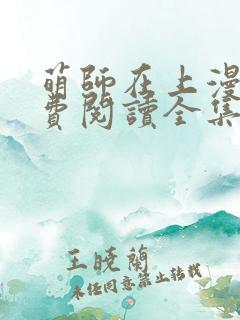 萌師在上漫
費閱讀全集
王曉蘭
未经同意禁止转载